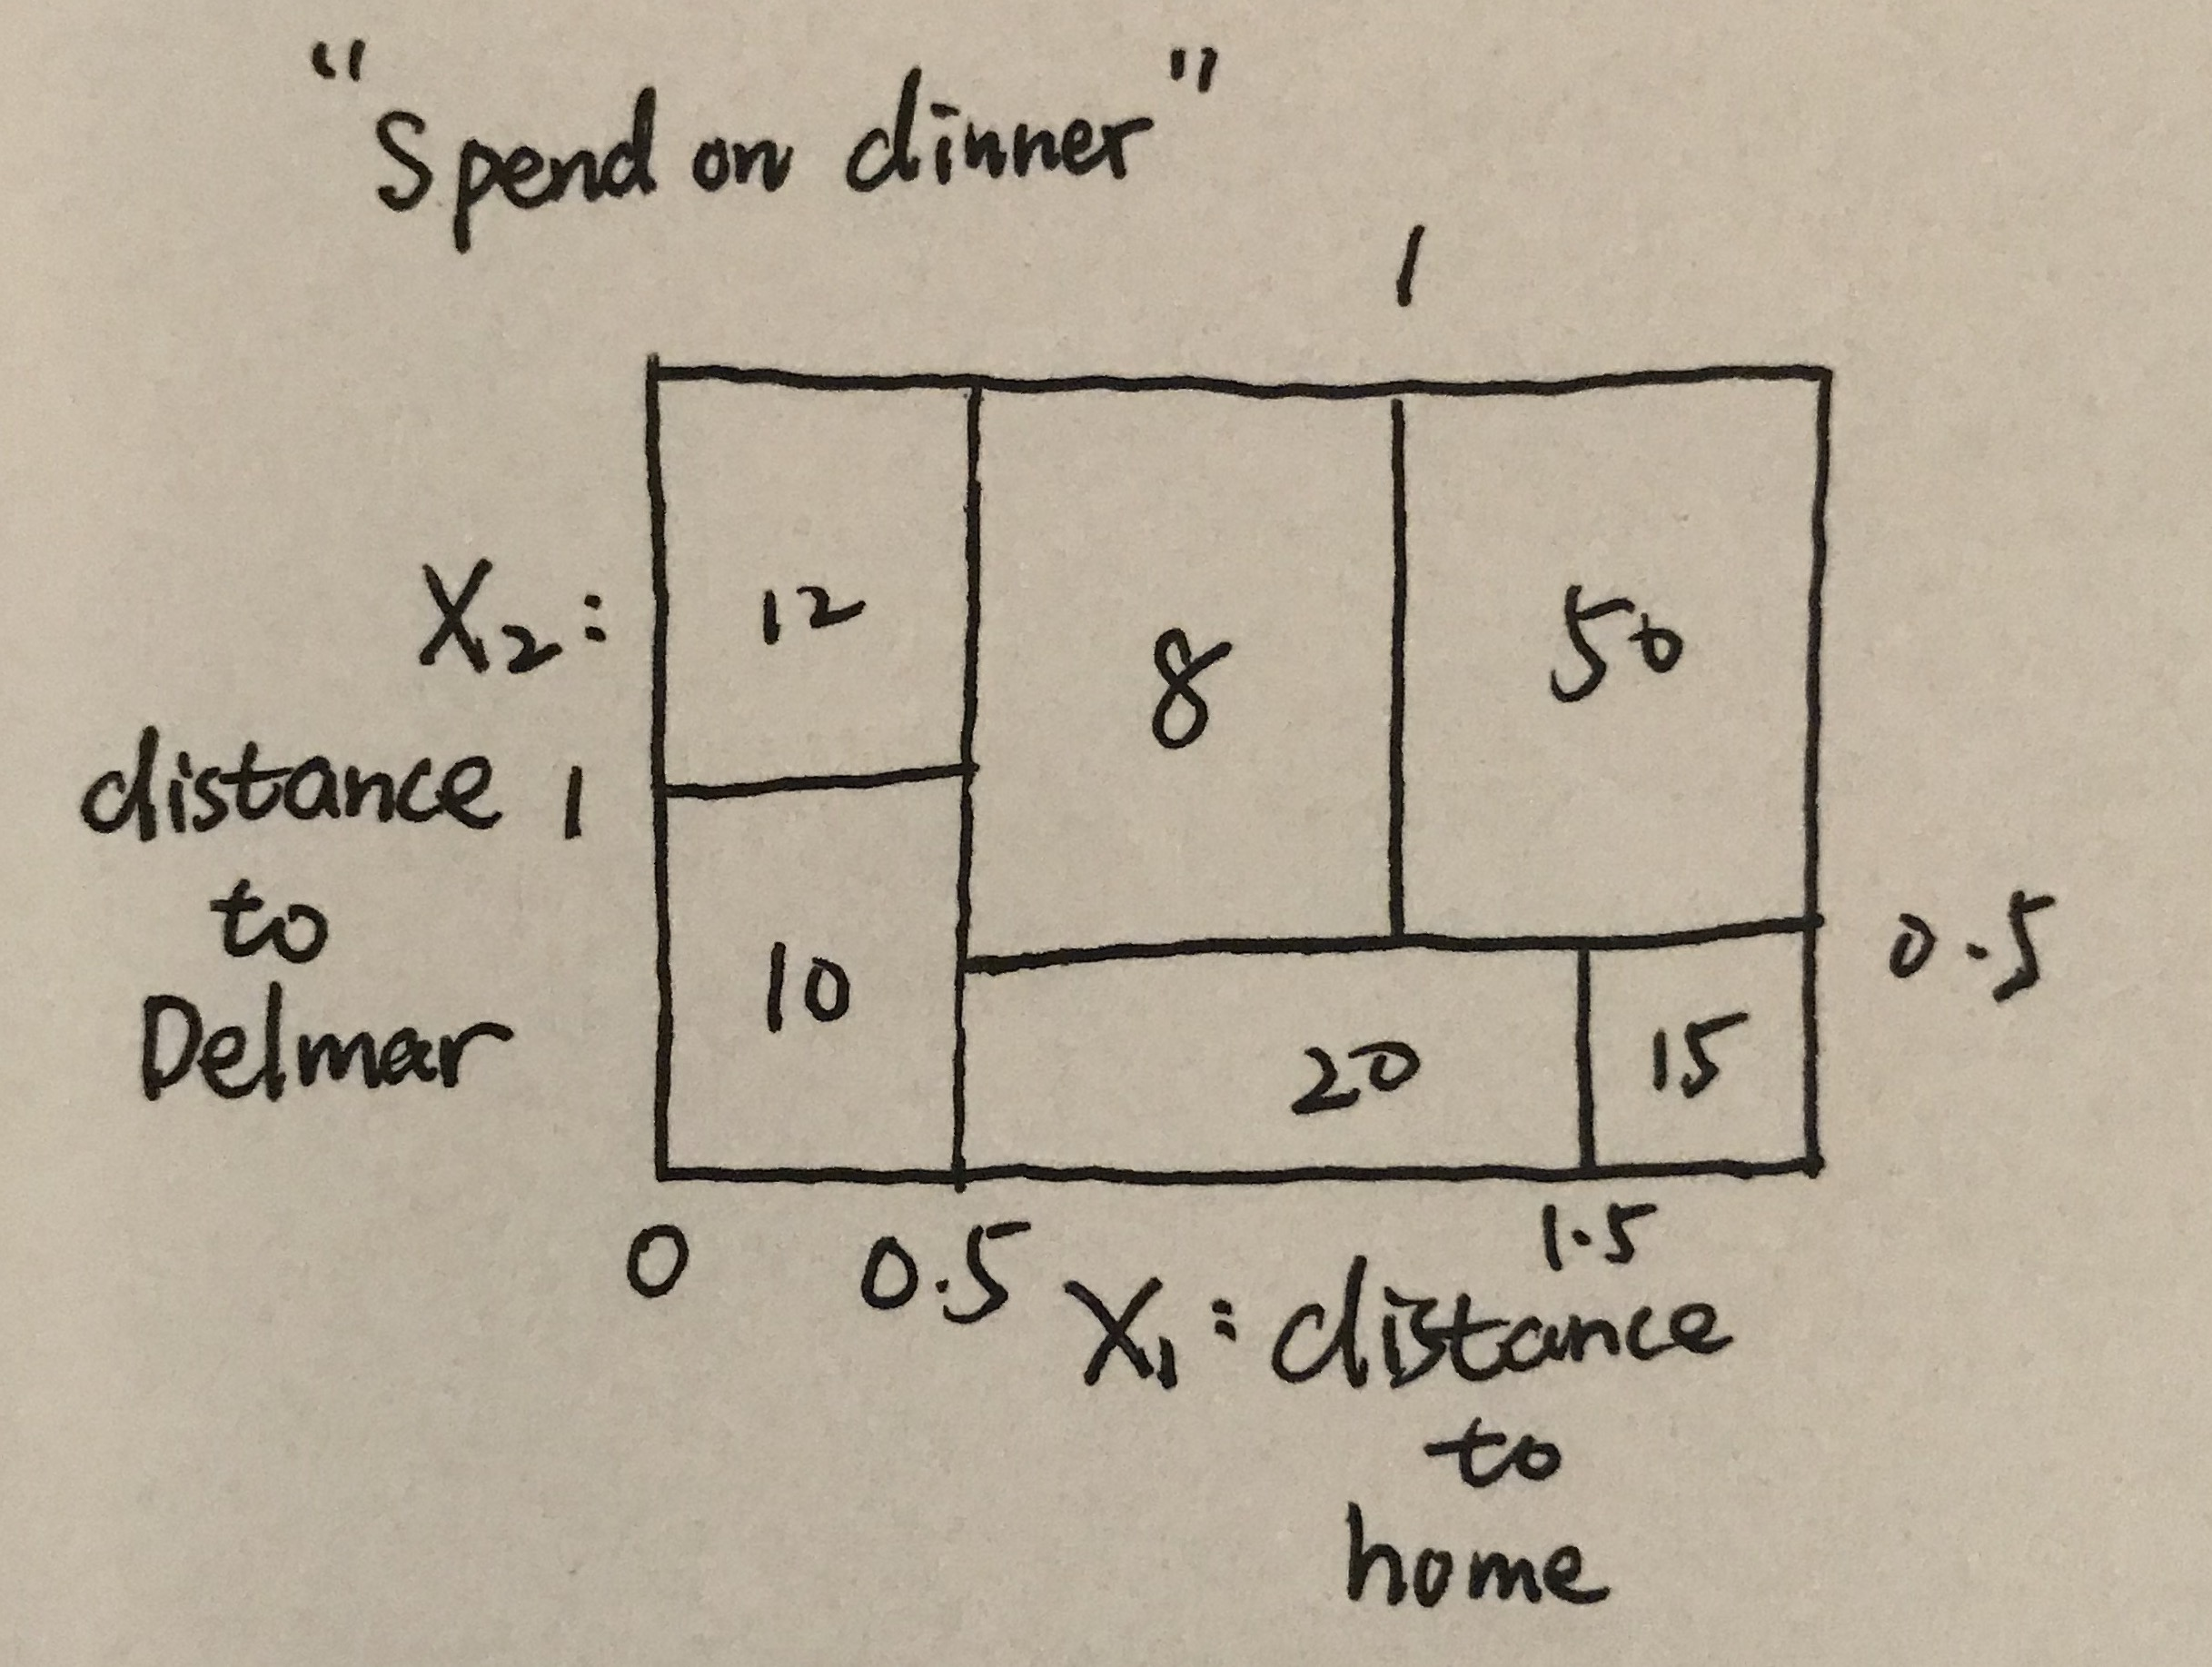 "Spend on dinner"
1
12
8
50
X₂:
distance 1
to
Delmar
10
0.5
20
15
0 0.5 1.5
X₁: distance
to
home